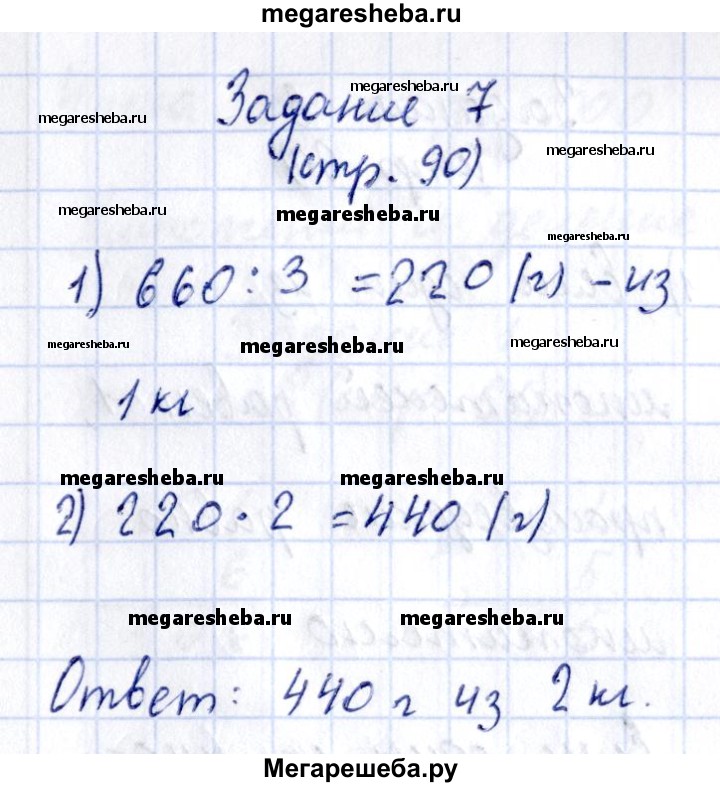 megaresheba.ru
megaresheba.ru
Задание 7
megaresheba.ru
megaresheba.ru
(стр. 90)
megaresheba.ru
megaresheba.ru
megaresheba.ru
1) 660 : 3 = 220 (г) - из
megaresheba.ru
megaresheba.ru
megaresheba.ru
1 кг
megaresheba.ru
megaresheba.ru
2) 220 · 2 = 440 (г)
megaresheba.ru
megaresheba.ru
Ответ: 440 г из 2 кг.
Мегарешеба.ру